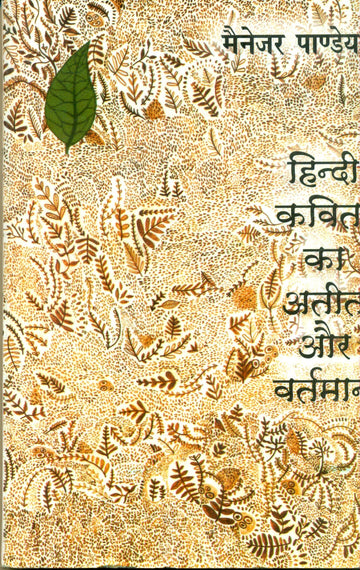 मैनेजर पाण्डेय
हिन्दी
कवित
का
अतीत
और
वर्तमान